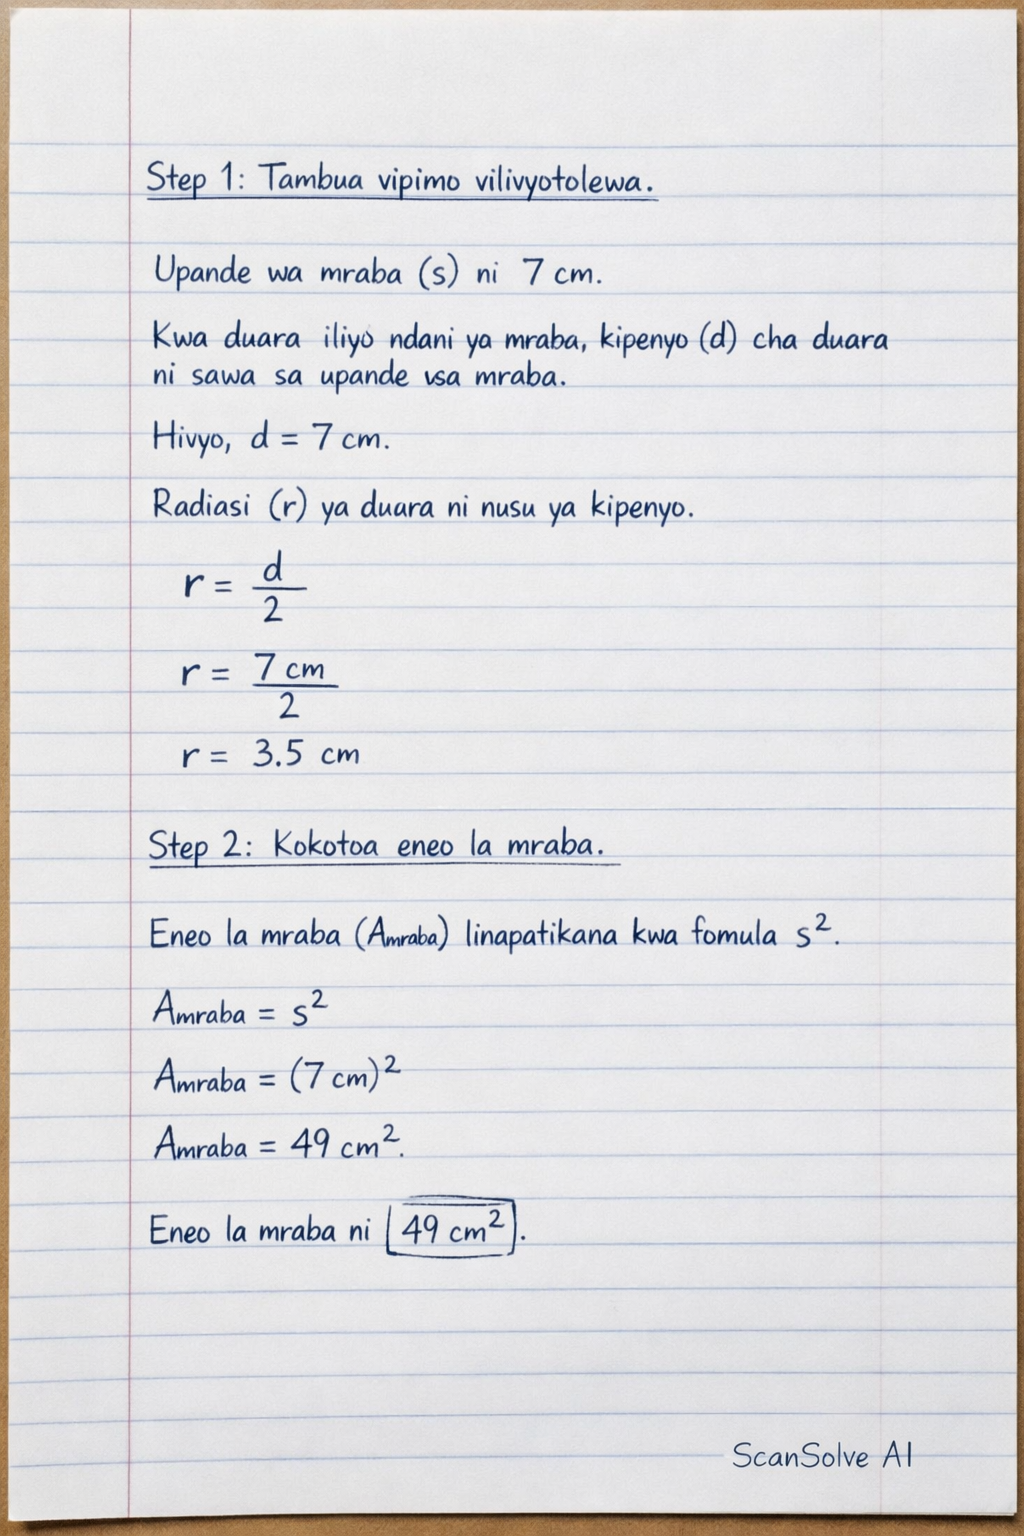 Step 1: Tambua vipimo vilivyotolewa.
Upande wa mraba (s) ni 7 cm.
Kwa duara iliyo ndani ya mraba, kipenyo (d) cha duara
ni sawa sa upande vsa mraba.
Hivyo, d = 7 cm.
Radiasi (r) ya duara ni nusu ya kipenyo.
r = d/2
r = 7 cm/2
r = 3.5 cm
Step 2: Kokotoa eneo la mraba.
Eneo la mraba (Amraba) linapatikana kwa fomula s².
Amraba = s²
Amraba = (7 cm)²
Amraba = 49 cm².
Eneo la mraba ni 49 cm².
ScanSolve AI